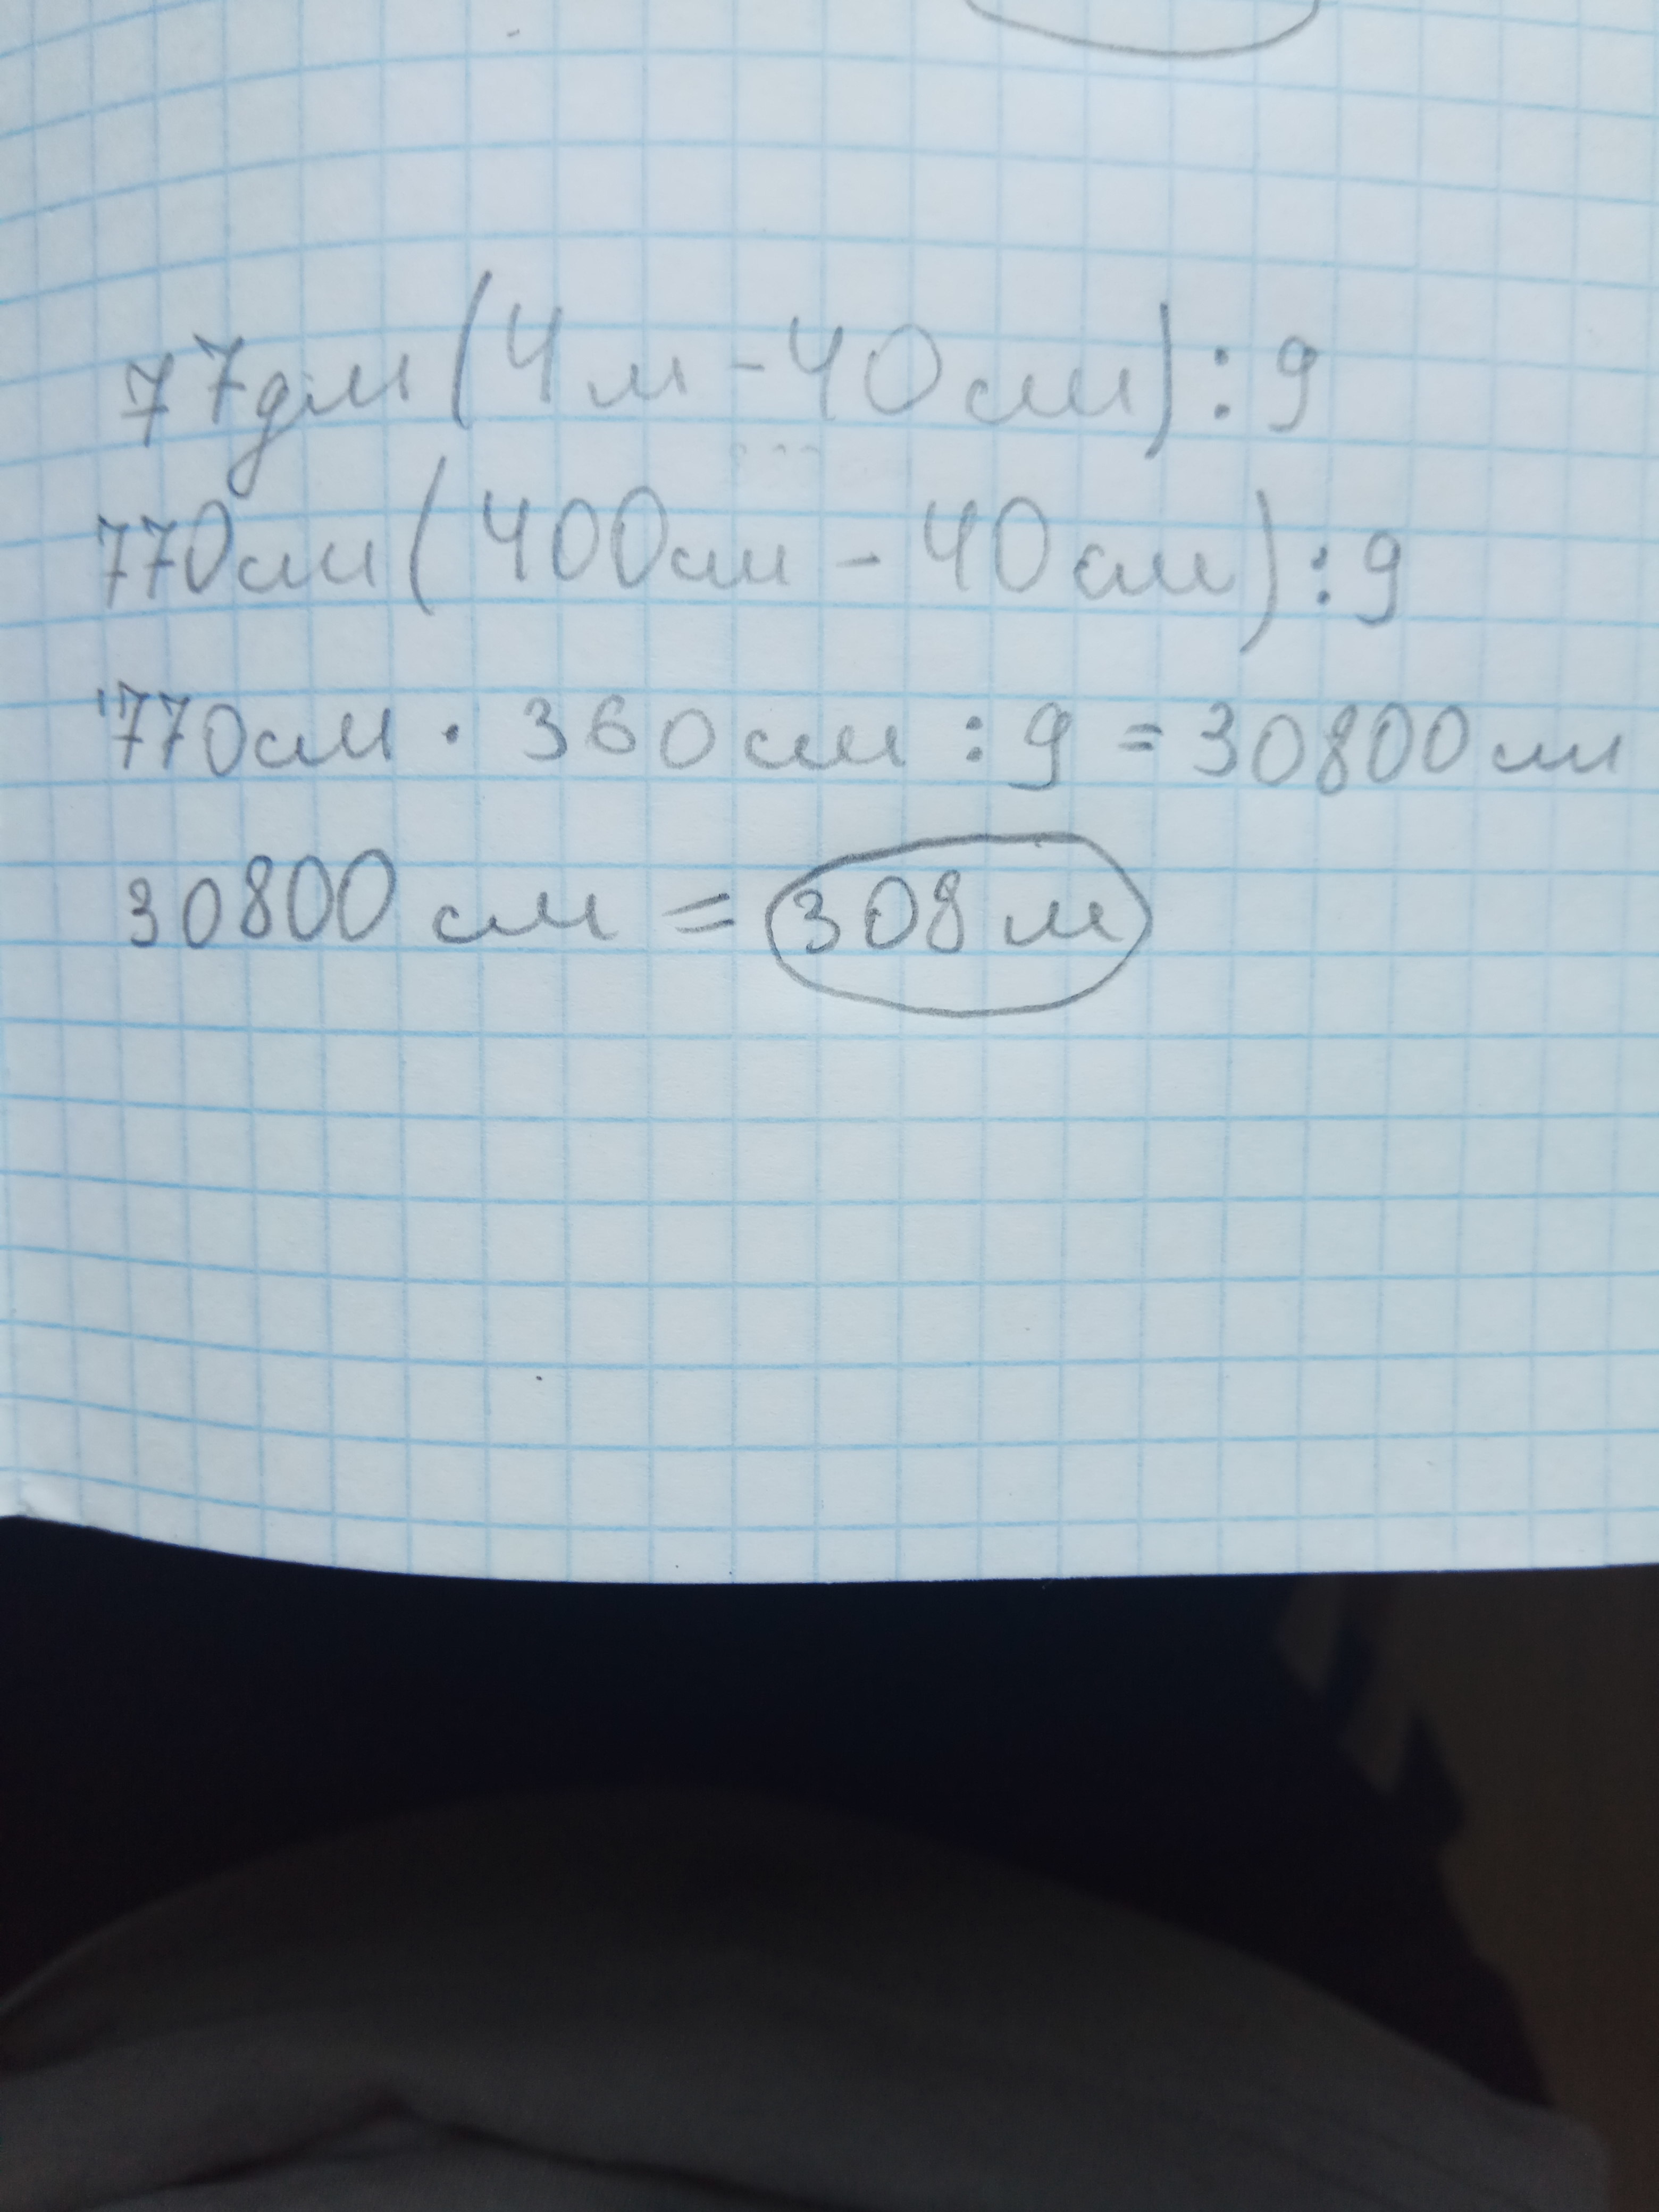 77дм(4м-40см):9
770см(400см-40см):9
770см·360см:9=30800см
30800см=308м